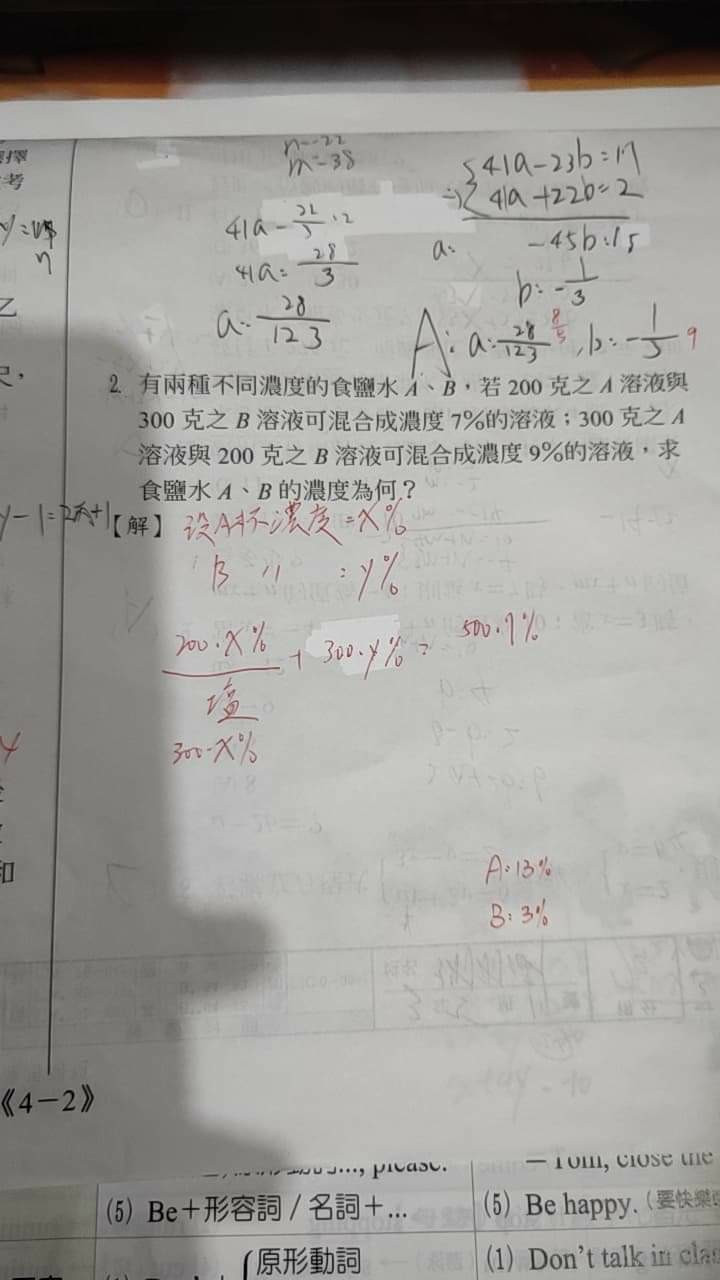 擇
考
n=-22
m=-38
41a-23b=17
41a+22b=2
-45b=15
b=-1/3
41a-22/3=2
41a=28/3
a=28/123
a=
A: a=28/123, b=-1/3
2. 有兩種不同濃度的食鹽水 A、B，若 200 克之 A 溶液與
300 克之 B 溶液可混合成濃度 7%的溶液；300 克之 A
溶液與 200 克之 B 溶液可混合成濃度 9%的溶液，求
食鹽水 A、B 的濃度為何？
y-1=2x+1
【解】 設A杯濃度=x%
B 〃 =y%
200·x% + 300·y% = 500·7%
塩
300·x%
A:13%
B:3%
和
《4－2》
please.
— Tom, close the
(5) Be＋形容詞 / 名詞＋...
(5) Be happy.（要快樂
原形動詞
(1) Don't talk in